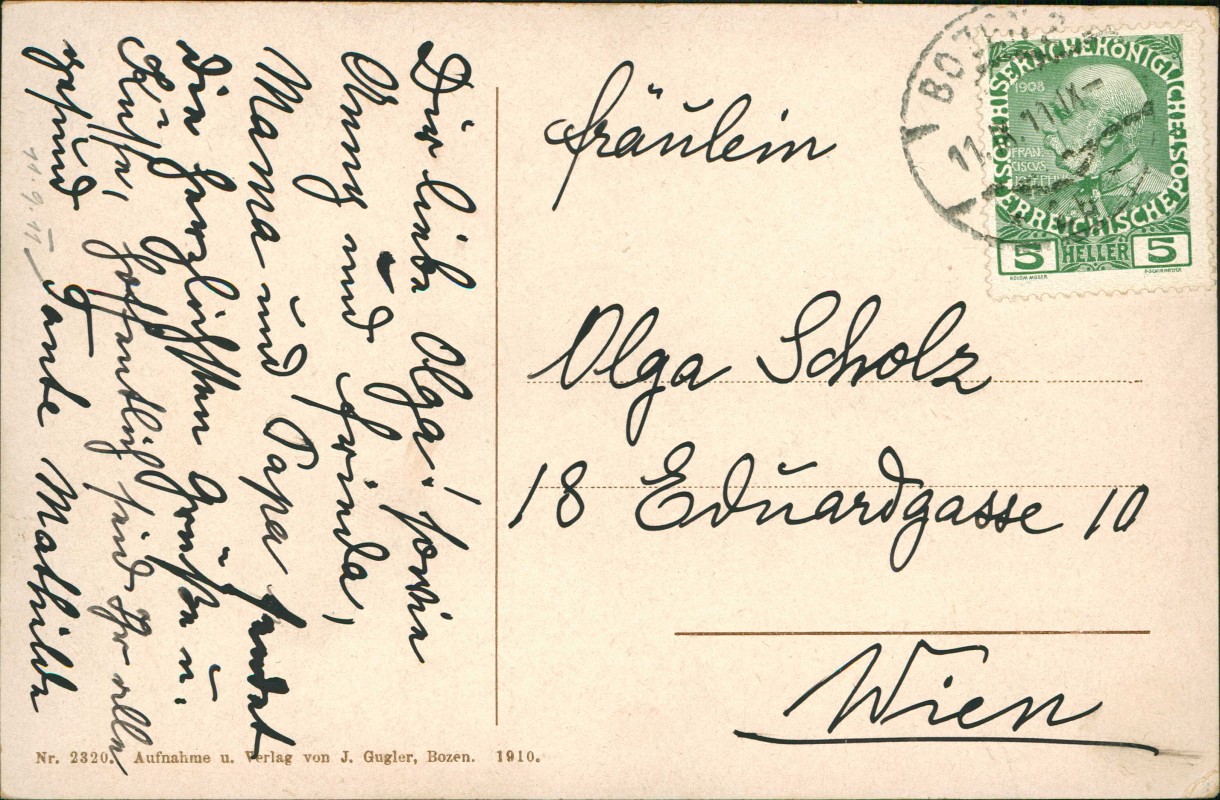 Dir liebe Olga! sowie
Anny und Frieda,
Mama und Papa sendet
die herzlichsten Grüße u.
Küsse, Hoffentlich seid Ihr alle
gesund Tante Mathilde
11.9.11
Fräulein
Olga Scholz
18 Eduardgasse 10
Wien
BOZEN
11.IX
KAISERLICHEKÖNIGLICHE
ÖSTERREICHISCHEPOST
1908
FRAN
CISCVS
IOSEPH
5 HELLER 5
KOLOM. MOSER
F. SCHIRNBÖCK
Nr. 2320. Aufnahme u. Verlag von J. Gugler, Bozen. 1910.